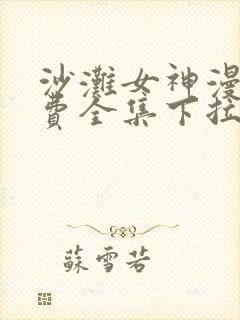 沙滩女神漫
费全集下拉
蘇雪若